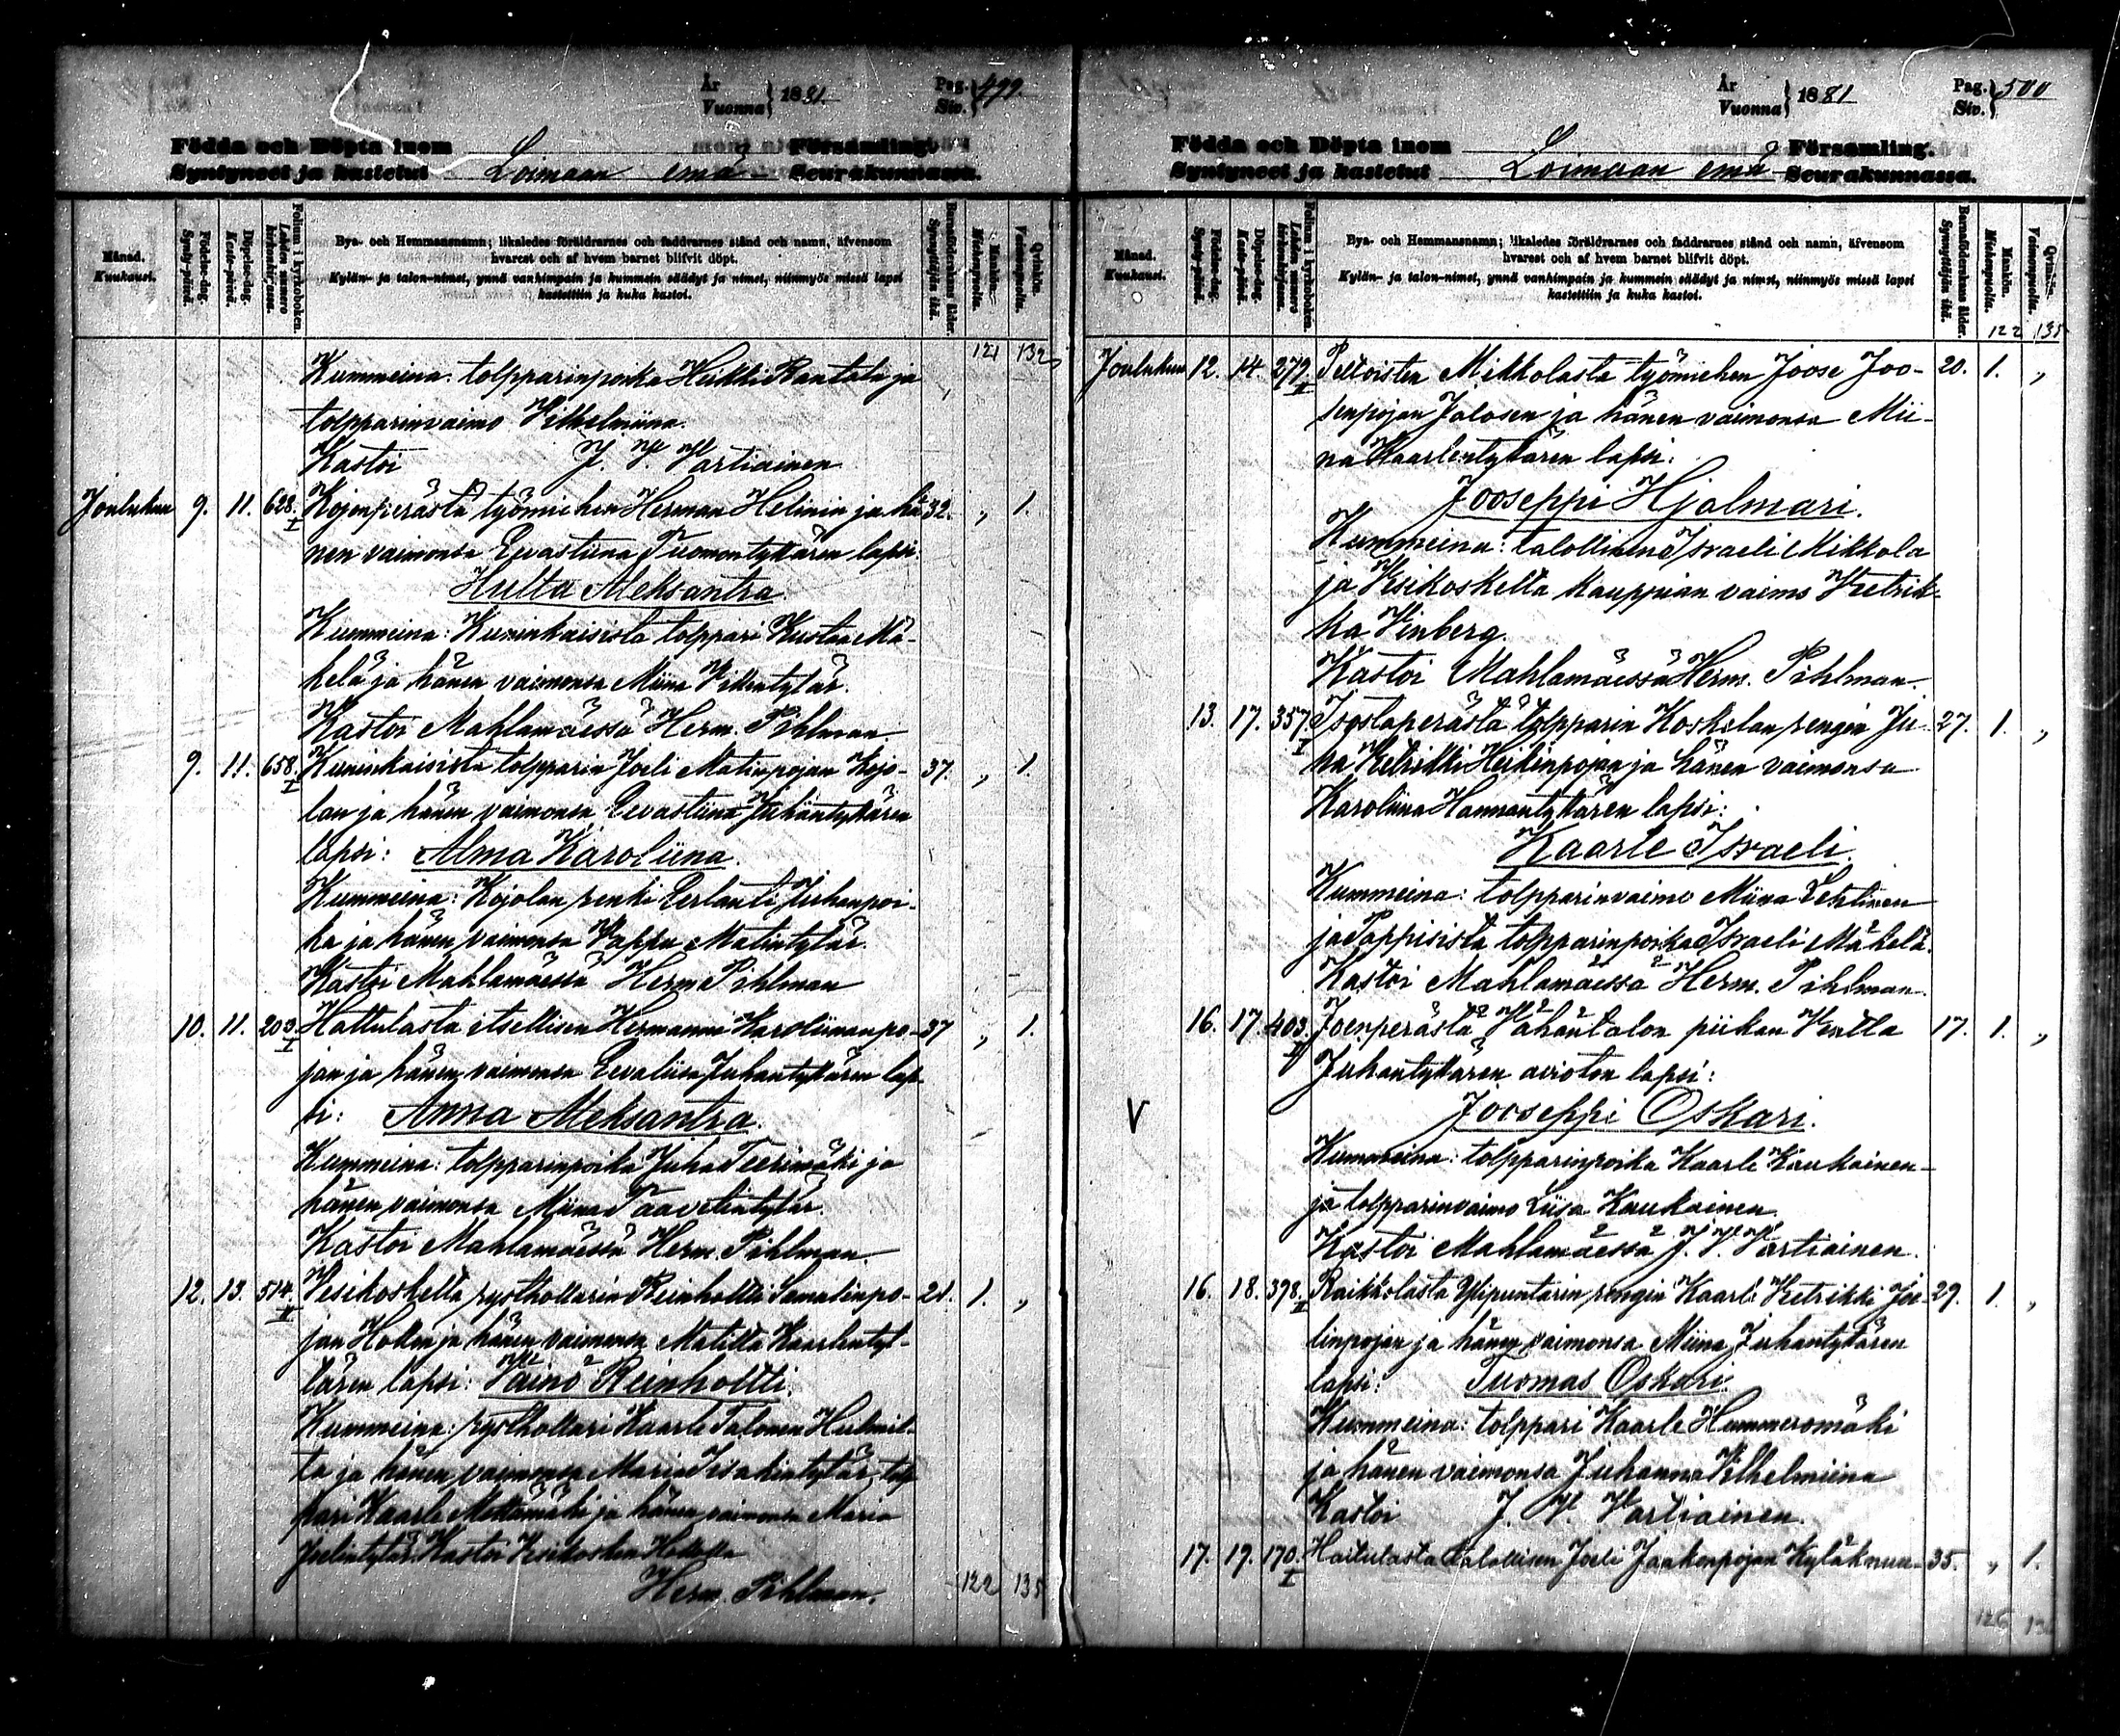 År Vuonna } 1881. Pag. Siv. } 499.
Födda och Döpta inom Församling.
Syntyneet ja kastetut Loimaan emä Seurakunnassa.
Månad. Kuukausi.
Födelse-dag. Synty-päivä.
Döpelse-dag. Kaste-päivä.
Folium i kyrkoboken. Lehden numero kirkonkirjassa.
Bya- och Hemmansnamn; likaledes föräldrarnes och faddrarnes stånd och namn, äfvensom
hvarest och af hvem barnet blifvit döpt.
Kylän- ja talon-nimet, ynnä vanhimpain ja kummein säädyt ja nimet, niinmyös missä lapsi
kastettiin ja kuka kastoi.
Barnaföderskans ålder. Synnyttäjän ikä.
Mankön. Miehenpuolia.
Qvinkön. Vaimonpuolia.
121 132
Kummeina: tolpparinpoika Heikki Rantala ja
tolpparinvaimo Vilhelmiina.
Kastoi J. V. Vartiainen
Joulukuu 9. 11. 628. I Kojonperästä työmiehen Herman Helinin ja hä- 32. „ 1.
nen vaimonsa Eevastiina Tuomontyttären lapsi
Hulta Aleksantra.
Kummeina: Kuninkaisista tolppari Kustaa Mä-
kelä ja hänen vaimonsa Miina Vilhentytär.
Kastoi Mahlamäessä Herm. Pihlman
9. 11. 658. I Kuninkaisista tolpparin Joeli Matinpojan Kojo- 37. „ 1.
lan ja hänen vaimonsa Eevastiina Juhantyttären
lapsi: Alma Karoliina.
Kummeina: Kojolan renki Eerlanti Juhanpoi-
ka ja hänen vaimonsa Vappu Matintytär.
Kastoi Mahlamäessä Herm Pihlman
10. 11. 203. I Hattulasta itsellisen Hermanni Karoliinanpo- 37 „ 1.
jan ja hänen vaimonsa Eevaliisa Juhantyttären lap-
si: Anna Aleksantra.
Kummeina: tolpparinpoika Juha Teerimäki ja
hänen vaimonsa Miina Taavetintytär.
Kastoi Mahlamäessä Herm. Pihlman
12. 13. 514. II Vesikoskelta rysthollarin Reinholtti Samulinpo- 21. 1. „
jan Hollen ja hänen vaimonsa Matilta Kaarlentyt-
tären lapsi: Väinö Reinholtti.
Kummeina: rysthollari Kaarle Talonen
ta ja hänen vaimonsa Maria Iisakintytär, tolp-
pari Kaarle Mettämäki ja hänen vaimonsa Maria
Joelintytär. Kastoi Vesikosken Hollella
Herm. Pihlman.
122 135
År Vuonna } 1881 Pag. Siv. } 500
Födda och Döpta inom Församling.
Syntyneet ja kastetut Loimaan emä Seurakunnassa.
Månad. Kuukausi.
Födelse-dag. Synty-päivä.
Döpelse-dag. Kaste-päivä.
Folium i kyrkoboken. Lehden numero kirkonkirjassa.
Bya- och Hemmansnamn; likaledes föräldrarnes och faddrarnes stånd och namn, äfvensom
hvarest och af hvem barnet blifvit döpt.
Kylän- ja talon-nimet, ynnä vanhimpain ja kummein säädyt ja nimet, niinmyös missä lapsi
kastettiin ja kuka kastoi.
Barnaföderskans ålder. Synnyttäjän ikä.
Mankön. Miehenpuolia.
Qvinkön. Vaimonpuolia.
122 135
Joulukuu 12. 14. 279. II Peltoisten Mikkolasta työmiehen Joose Joo- 20. 1. „
senpojan Jalosen ja hänen vaimonsa Mii-
na Kaarlentyttären lapsi:
Jooseppi Hjalmari.
Kummeina: talollinen Israeli Mikkola
ja Vesikoskelta kauppian vaimo Vretrik-
ka Vinberg.
Kastoi Mahlamäessä Herm. Pihlman.
13. 17. 357. I Isostaperästä tolpparin Koskelan rengin Ju- 27. 1. „
ha Vetrikki Heikinpojan ja hänen vaimonsa
Karoliina Hannantyttären lapsi:
Kaarle Israeli.
Kummeina: tolpparinvaimo Miina Lehtinen
ja Pappisista tolpparinpoika Israeli Mäkelä.
Kastoi Mahlamäessä Herm. Pihlman.
16. 17. 403. II Joenperästä Vähäntalon piikan Venlla 17. 1. „
Juhantyttären avioton lapsi:
V Jooseppi Oskari.
Kummeina: tolpparinpoika Kaarle Kaukainen
ja tolpparinvaimo Liisa Kaukainen.
Kastoi Mahlamäessä J. V. Vartiainen.
16. 18. 398. II Raikkolasta Ylipuntarin rengin Kaarle Vetrikki Joe- 29. 1. „
linpojan ja hänen vaimonsa Miina Juhantyttären
lapsi: Tuomas Oskari.
Kummeina: tolppari Kaarle Hummeromäki
ja hänen vaimonsa Juhanna Vilhelmiina
Kastoi J. V. Vartiainen.
17. 19. 170. I Haitulasta talollisen Joeli Jaakonpojan Kyläknuu- 35. „ 1.
126